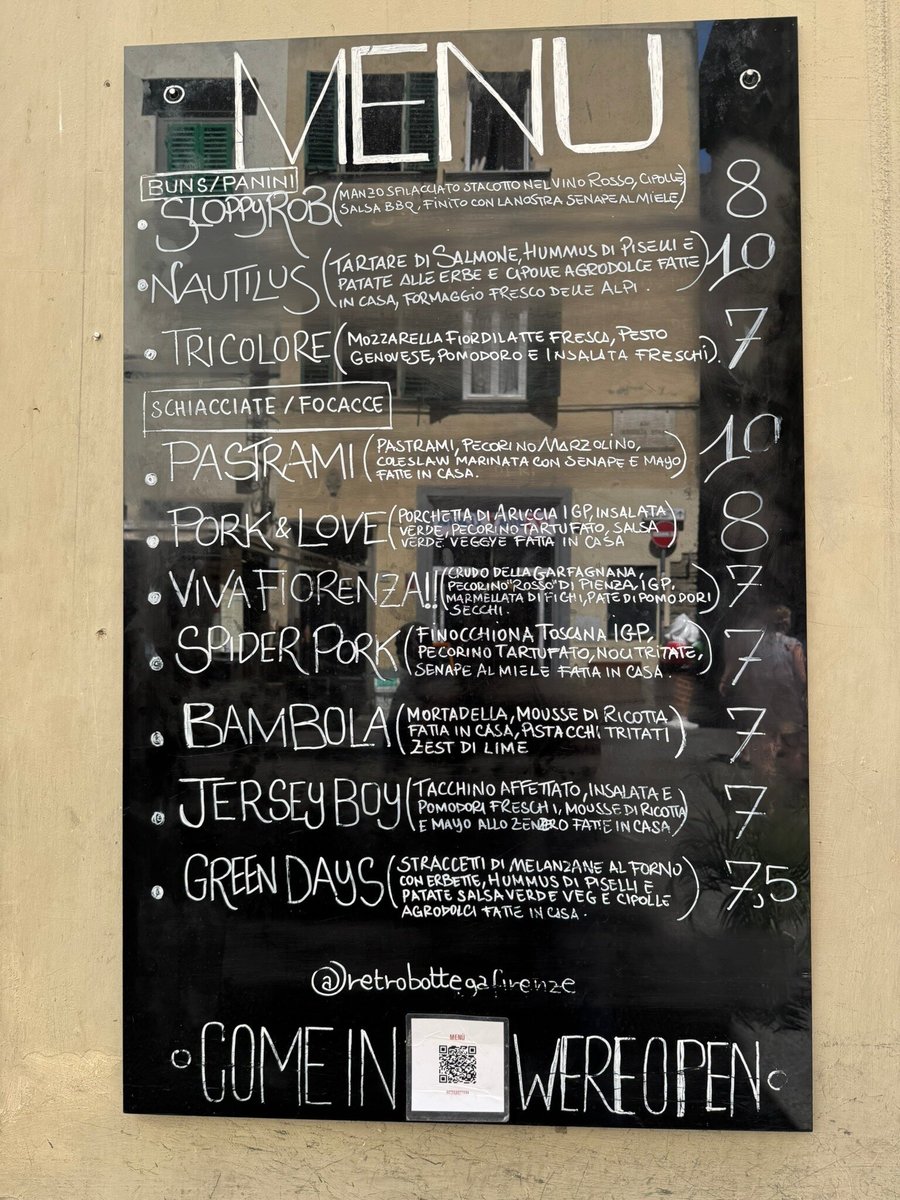 MENU
BUNS/PANINI
SLOPPY ROB (MANZO SFILACCIATO STACOTTO NEL VINO ROSSO, CIPOLLE, 8
SALSA BBQ, FINITO CON LA NOSTRA SENAPE AL MIELE)
NAUTILUS (TARTARE DI SALMONE, HUMMUS DI PISELLI E 10
PATATE ALLE ERBE E CIPOLLE AGRODOLCE FATTE
IN CASA, FORMAGGIO FRESCO DELLE ALPI.)
TRICOLORE (MOZZARELLA FIORDILATTE FRESCA, PESTO 7
GENOVESE, POMODORO E INSALATA FRESCHI).
SCHIACCIATE / FOCACCE
PASTRAMI (PASTRAMI, PECORINO MARZOLINO, 10
COLESLAW MARINATA CON SENAPE E MAYO
FATTE IN CASA.)
PORK & LOVE (PORCHETTA DI ARICCIA IGP, INSALATA 8
VERDE, PECORINO TARTUFATO, SALSA
VERDE VEGGYE FATTA IN CASA)
VIVA FIORENZA!! (CRUDO DELLA GARFAGNANA, 7
PECORINO "ROSSO" DI PIENZA, IGP,
MARMELLATA DI FICHI, PATE DI POMODORI
SECCHI.)
SPIDER PORK (FINOCCHIONA TOSCANA IGP, 7
PECORINO TARTUFATO, NOCI TRITATE,
SENAPE AL MIELE FATTA IN CASA.)
BAMBOLA (MORTADELLA, MOUSSE DI RICOTTA 7
FATTA IN CASA, PISTACCHI TRITATI
ZEST DI LIME)
JERSEY BOY (TACCHINO AFFETTATO, INSALATA E 7
POMODORI FRESCHI, MOUSSE DI RICOTTA
E MAYO ALLO ZENZERO FATTE IN CASA)
GREEN DAYS (STRACCETTI DI MELANZANE AL FORNO 7,5
CON ERBETTE, HUMMUS DI PISELLI E
PATATE SALSA VERDE VEG E CIPOLLE
AGRODOLCI FATTE IN CASA.)
@retrobottegafirenze
MENÙ
COME IN WERE OPEN